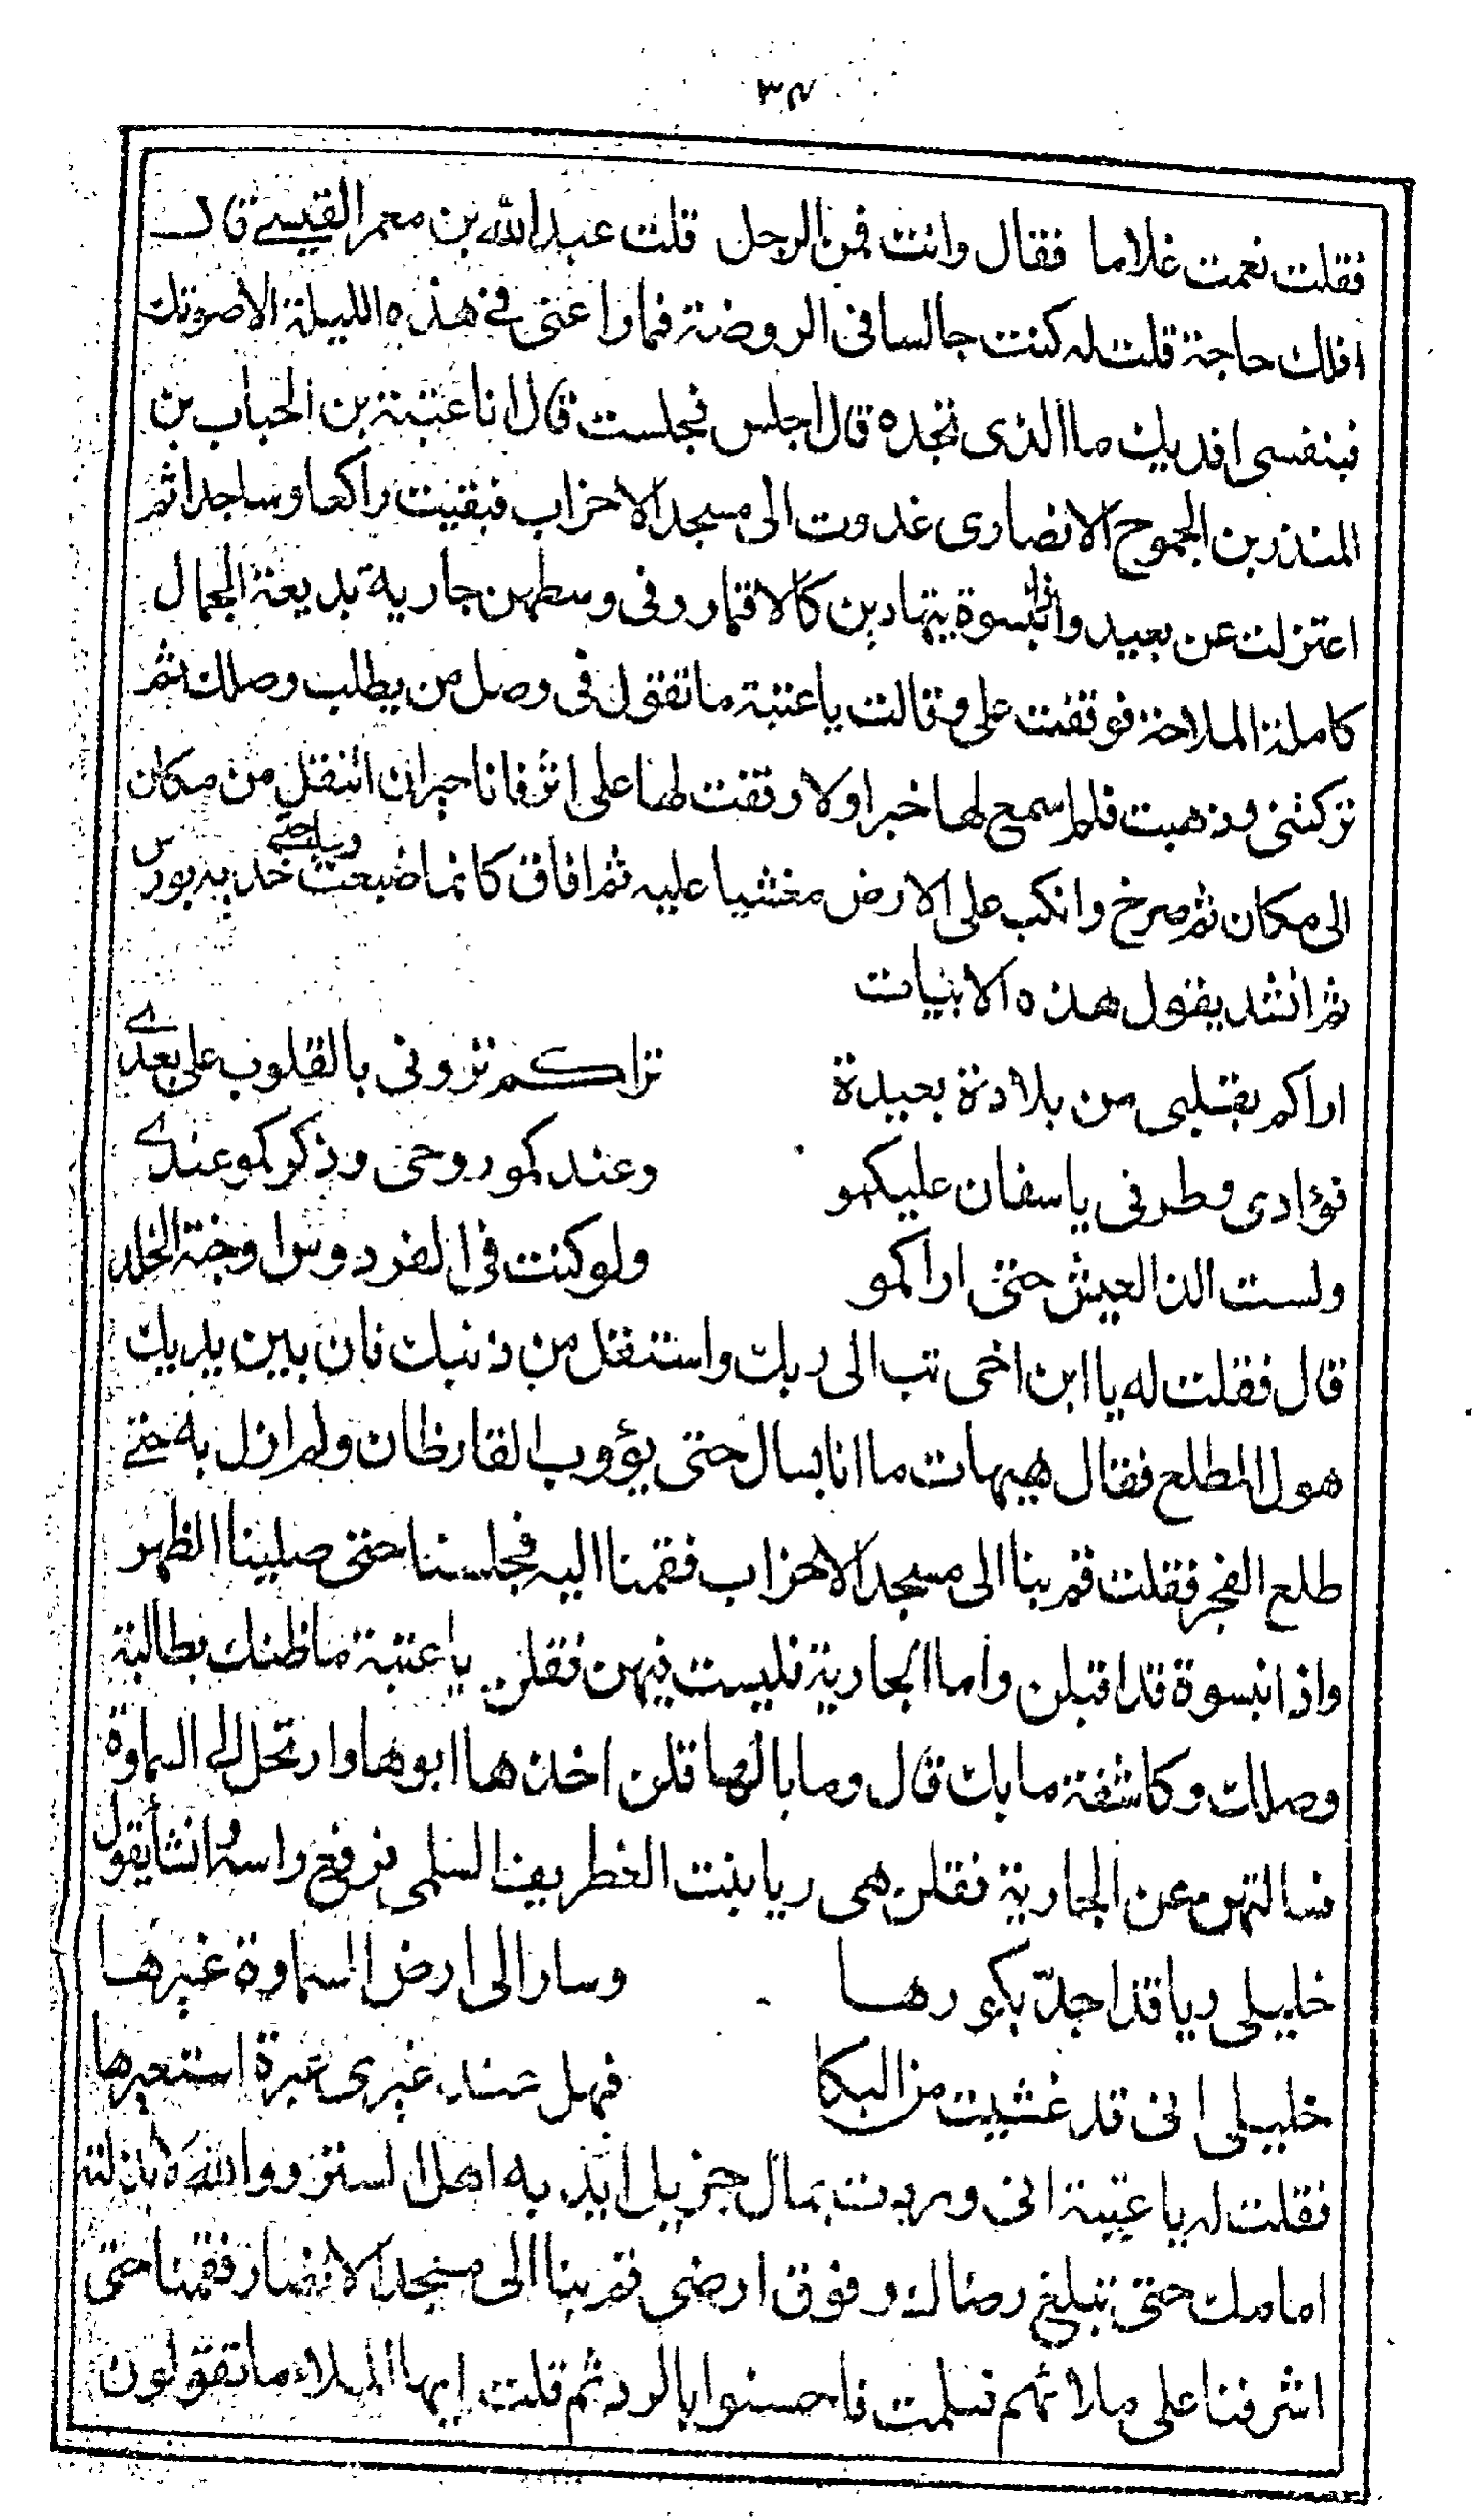 ٣٤
فقلت نعمت غلاما فقال وانت فمن الرجل قلت عبد الله بن معمر القيسي قال
افلك حاجة قلت له كنت جالسا فى الروضة فما راعنى في هذه الليلة الا صوتك
فبنفسى افديك ما الذى تجده قال اجلس فجلست قال انا عتبة بن الحباب بن
المنذر بن الجموح الانصارى غدوت الى مسجد الاحزاب فبقيت راكعا وساجدا ثم
اعتزلت عن بعيد واذا بنسوة يتهادين كالاقمار وفى وسطهن جارية بديعة الجمال
كاملة الملاحة فوقفت على وقالت يا عتبة ما تقول فى وصل من يطلب وصلك ثم
تركتنى وذهبت فلم اسمع لها خبرا ولا وقفت لها على اثر فانا حيران انتقل من مكان
الى مكان ثم صرخ وانكب على الارض مغشيا عليه ثم افاق كانما صبغت ديباجتي خديه بورس
ثم انشد يقول هذه الابيات
اراكم بقلبى من بلادة بعيدة تراكم ترونى بالقلوب على بعدي
فؤادى وطرفى ياسفان عليكمو وعندكمو روحى وذكركمو عندي
ولست الذ العيش حتى اراكمو ولو كنت فى الفردوس او جنة الخلد
قال فقلت له يا ابن اخى تب الى ربك واستقل من ذنبك فان بين يديك
هول المطلع فقال هيهات ما انا بسال حتى يؤوب القارظان ولم ازل به حتي
طلع الفجر فقلت قم بنا الى مسجد الاحزاب فقمنا اليه فجلسنا حتى صلينا الظهر
واذا بنسوة قد اقبلن واما الجارية فليست فيهن فقلن يا عتبة ما ظنك بطالبة
وصلك وكاشفة ما بك قال وما بالها قلن اخذها ابوها وارتحل الى السماوة
فسالتهن عن الجارية فقلن هى ريا بنت الغطريف السلمى فرفع راسه وانشأ يقول
خليلى ريا قد اجدّ بكورها وسار الى ارض السماوة غيرها
خليلى انى قد غشيت من البكا فهل عند غيرى عبرة استعيرها
فقلت له يا عتيبة انى وردت بمال جزيل ايد به اهل الستر ووالله لابذلنه
امامك حتى تبلغ رضاك وفوق ارضى قم بنا الى مسجد الانصار فقمنا حتى
اشرفنا على ملائهم فسلمت فاحسنوا بالرد ثم قلت ايها الملاء ما تقولون